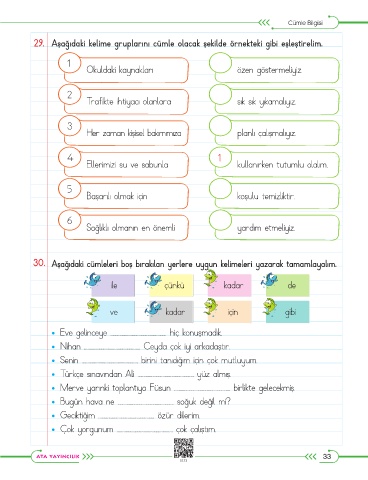 Cümle Bilgisi
29. Aşağıdaki kelime gruplarını cümle olacak şekilde örnekteki gibi eşleştirelim.
1 Okuldaki kaynakları
özen göstermeliyiz.
2 Trafikte ihtiyacı olanlara
sık sık yıkamalıyız.
3 Her zaman kişisel bakımımıza
planlı çalışmalıyız.
4 Ellerimizi su ve sabunla
1 kullanırken tutumlu olalım.
5 Başarılı olmak için
koşulu temizliktir.
6 Sağlıklı olmanın en önemli
yardım etmeliyiz.
30. Aşağıdaki cümleleri boş bırakılan yerlere uygun kelimeleri yazarak tamamlayalım.
ile çünkü kadar de
ve kadar için gibi
• Eve gelinceye ........................ hiç konuşmadık.
• Nihan ........................ Ceyda çok iyi arkadaştır.
• Senin ........................ birini tanıdığım için çok mutluyum.
• Türkçe sınavından Ali ........................ yüz almış.
• Merve yarınki toplantıya Füsun ........................ birlikte gelecekmiş.
• Bugün hava ne ........................ soğuk değil mi?
• Geciktiğim ........................ özür dilerim.
• Çok yorgunum ........................ çok çalıştım.
ATA YAYINCILIK
33